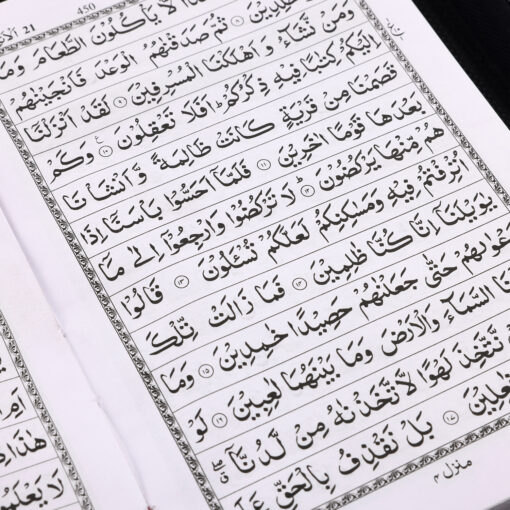 450
21
لَّا يَأْكُلُوْنَ الطَّعَامَ وَمَا
لِدِيْنَ ۸ ثُمَّ صَدَقْنٰهُمُ الْوَعْدَ فَاَنْجَيْنٰهُمْ
وَمَنْ نَّشَآءُ وَاَهْلَكْنَا الْمُسْرِفِيْنَ ۹ لَقَدْ اَنْزَلْنَآ
اِلَيْكُمْ كِتٰبًا فِيْهِ ذِكْرُكُمْ ؕ اَفَلَا تَعْقِلُوْنَ ۱۰ وَكَمْ
قَصَمْنَا مِنْ قَرْيَةٍ كَانَتْ ظَالِمَةً وَّاَنْشَاْنَا
بَعْدَهَا قَوْمًا اٰخَرِيْنَ ۱۱ فَلَمَّآ اَحَسُّوْا بَاْسَنَآ اِذَا
هُمْ مِّنْهَا يَرْكُضُوْنَ ۱۲ لَا تَرْكُضُوْا وَارْجِعُوْٓا اِلٰى مَآ
اُتْرِفْتُمْ فِيْهِ وَمَسٰكِنِكُمْ لَعَلَّكُمْ تُسْـَٔلُوْنَ ۱۳ قَالُوْا
يٰوَيْلَنَآ اِنَّا كُنَّا ظٰلِمِيْنَ ۱۴ فَمَا زَالَتْ تِّلْكَ
عْوٰىهُمْ حَتّٰى جَعَلْنٰهُمْ حَصِيْدًا خٰمِدِيْنَ ۱۵ وَمَا
نَا السَّمَآءَ وَالْاَرْضَ وَمَا بَيْنَهُمَا لٰعِبِيْنَ ۱۶ لَوْ
نَّتَّخِذَ لَهْوًا لَّاتَّخَذْنٰهُ مِنْ لَّدُنَّآ
عِلِيْنَ ۱۷ بَلْ نَقْذِفُ بِالْحَقِّ عَلَ
منزل ۴